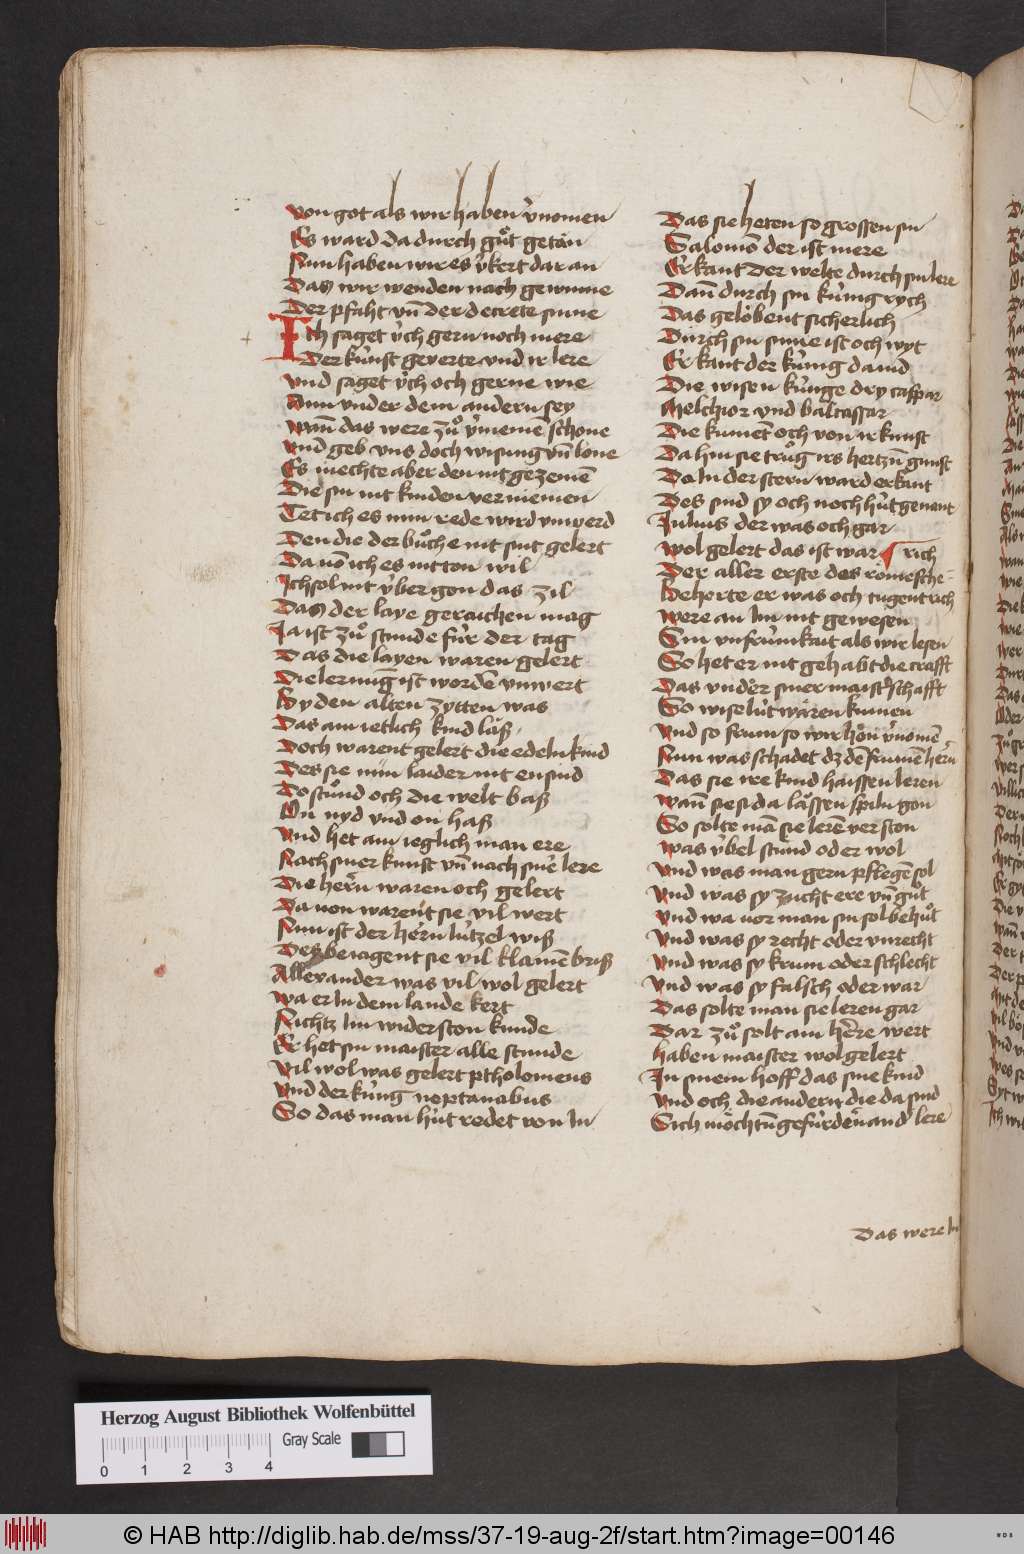 von got als wir haben v̾nomen
Es ward da durch gůt getän
Nun haben wir es v̾kert dar an
Das wir wenden nach gewinne
Der pfaht vn̄ der decrete sinne
Ich saget v̈ch gern noch mere
Der kúnst geuerte vnd ir lere
vnd saget v̈ch och gerne wie
Ain vnder dem andern sey
wan̄ das were zů v̾nemē schone
vnd geb vns doch wisung vn̄ lone
Es mechte aber den nit gezemē
Die sin nit kinden verniemen
Tet ich es min rede wird vnwerd
Den die der bůche nit sint gelert
Da vō ich es nit ton wil
Ich sol nit v̈ber gon das zil
Das der laye geraichen mag
Ja ist zů stunde fúr der tag
Das die layen waren gelert
Die lernūg ist wordē vnwert
By den alten zytten was
Das ain ietlich kind läß
Doch warent gelert die edeln kind
Des sie nun laider nit ensind
Do stůnd och die welt baß
On nyd vnd on haß
Vnd het ain ieglich man ere
Nach siner kunst vn̄ nach sin̾ lere
Die hern̄ waren och gelert
Da von warent sie vil wert
Nun ist der hern lútzel wiß
Des beiagent sie vil klainē briß
Allexander was vil wol gelert
wa er In dem lande kert
Nichtz Im widerston kunde
Er het sin maister alle stunde
Vil wol was gelert ptholomeus
Vnd der kúng neptanabus
So das man hút redet von In
Das sie heten so grossen sin
Salomō der ist mere
Erkant der welte durch sin lere
Dan̄ durch sin kúng rych
Das gelobent sicherlich
Durch sin sinne ist och wyt
Erkant der kúng dauid
Die wisen kúnge dry caspar
Melchior vnd baltassar
Die kument och von ir kunst
Da hin sie trůg irs hertzn̄ gunst
Do In der stern ward erkant
Des sind sy och noch hút genant
Julius der was och gar
Wol gelert das ist war
rich
Der aller erste des römesche
Beherte er was och tugentrich
Were an Im nit gewesen
Sin vnfrúmkait als wir lesen
So het er nit gehabt die crafft
Das vnder siner maist̾schafft
So wise lút wären kumen
Vnd so frum so wir hön v̾nomē
Nun was schadet dz dē frumē hern̄
Das sie ire kind haissen leren
wan̄ sie si da lässen spiln gon
So solte mā sie lerē verston
was v̈bel stůnd oder wol
Vnd was man gern pflegē sol
Vnd was sy zucht ere vn̄ gůt
Vnd wa vor man sin sol behůt
Vnd was sy recht oder vnrecht
Vnd was sy krum oder schlecht
Vnd was sy falsch oder war
Das solte man sie leren gar
Dar zů solt ain here wert
haben maister wol gelert
In sinem hoff das sine kind
Vnd och die andern die da sind
Sich möchtn̄ gefúrdern and lere
Das were In
Herzog August Bibliothek Wolfenbüttel
Gray Scale
0 1 2 3 4
© HAB http://diglib.hab.de/mss/37-19-aug-2f/start.htm?image=00146